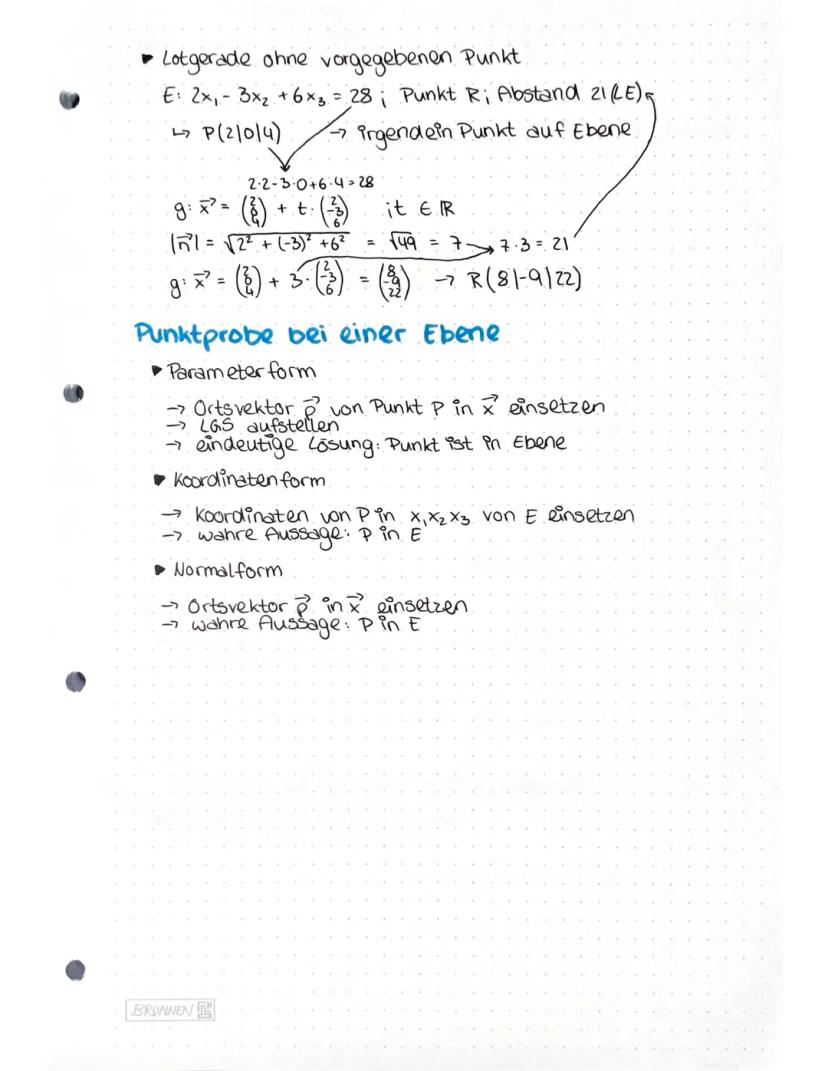 ▸ Lotgerade ohne vorgegebenen Punkt
E: 2x₁ - 3x₂ + 6x₃ = 28 ; Punkt R; Abstand 21 (LE)
↳ P(2|0|4) → irgendein Punkt auf Ebene
2·2-3·0+6·4=28
g: x⃗ = (2 0 4) + t · (2 -3 6) ; t ∈ ℝ
|n⃗| = √(2² + (-3)² + 6²) = √49 = 7 → 7·3 = 21
g: x⃗ = (2 0 4) + 3 · (2 -3 6) = (8 -9 22) → R(8|-9|22)
Punktprobe bei einer Ebene
▸ Parameterform
→ Ortsvektor p⃗ von Punkt P in x⃗ einsetzen
→ LGS aufstellen
→ eindeutige Lösung: Punkt ist in Ebene
▸ Koordinatenform
→ Koordinaten von P in x₁x₂x₃ von E einsetzen
→ wahre Aussage: P in E
▸ Normalform
→ Ortsvektor p⃗ in x⃗ einsetzen
→ wahre Aussage: P in E
BRUNNEN